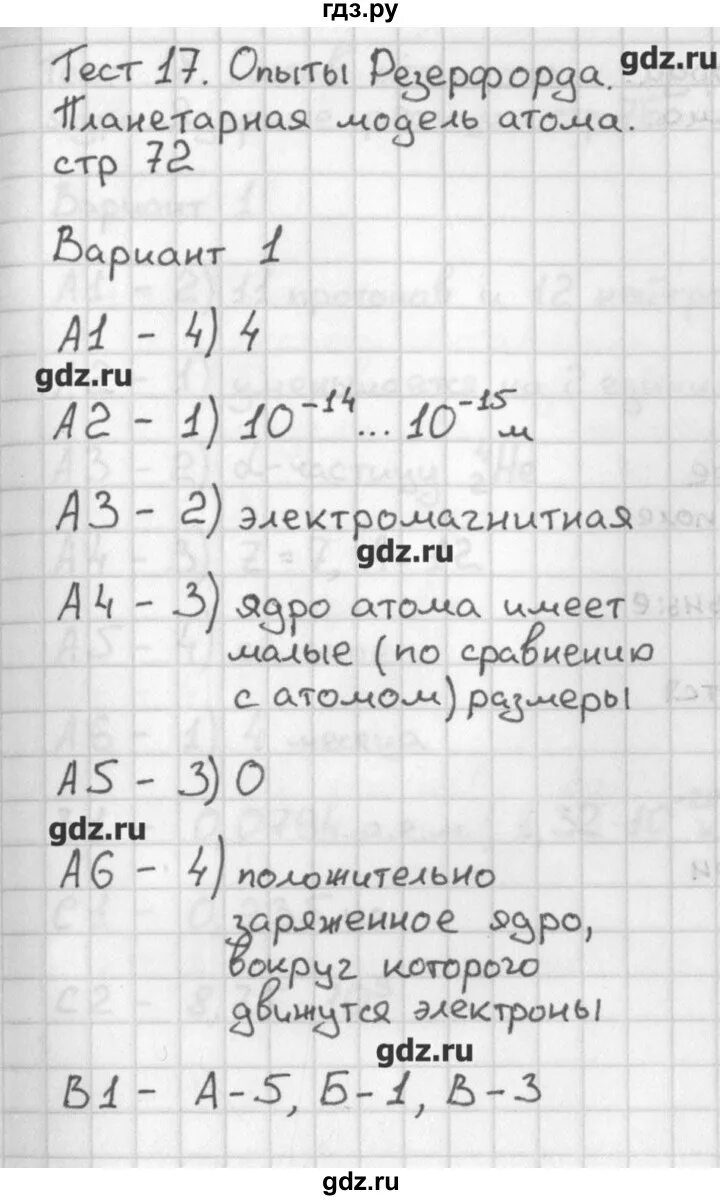 гдз.ру
gdz.ru
Тест 17. Опыты Резерфорда.
Планетарная модель атома.
стр 72
Вариант 1
А1 - 4) 4
gdz.ru
А2 - 1) 10⁻¹⁴... 10⁻¹⁵ м
А3 - 2) электромагнитная
gdz.ru
А4 - 3) ядро атома имеет
малые (по сравнению
с атомом) размеры
А5 - 3) 0
gdz.ru
А6 - 4) положительно
заряженное ядро,
вокруг которого
движутся электроны
gdz.ru
В1 - А-5, Б-1, В-3
gdz.ru